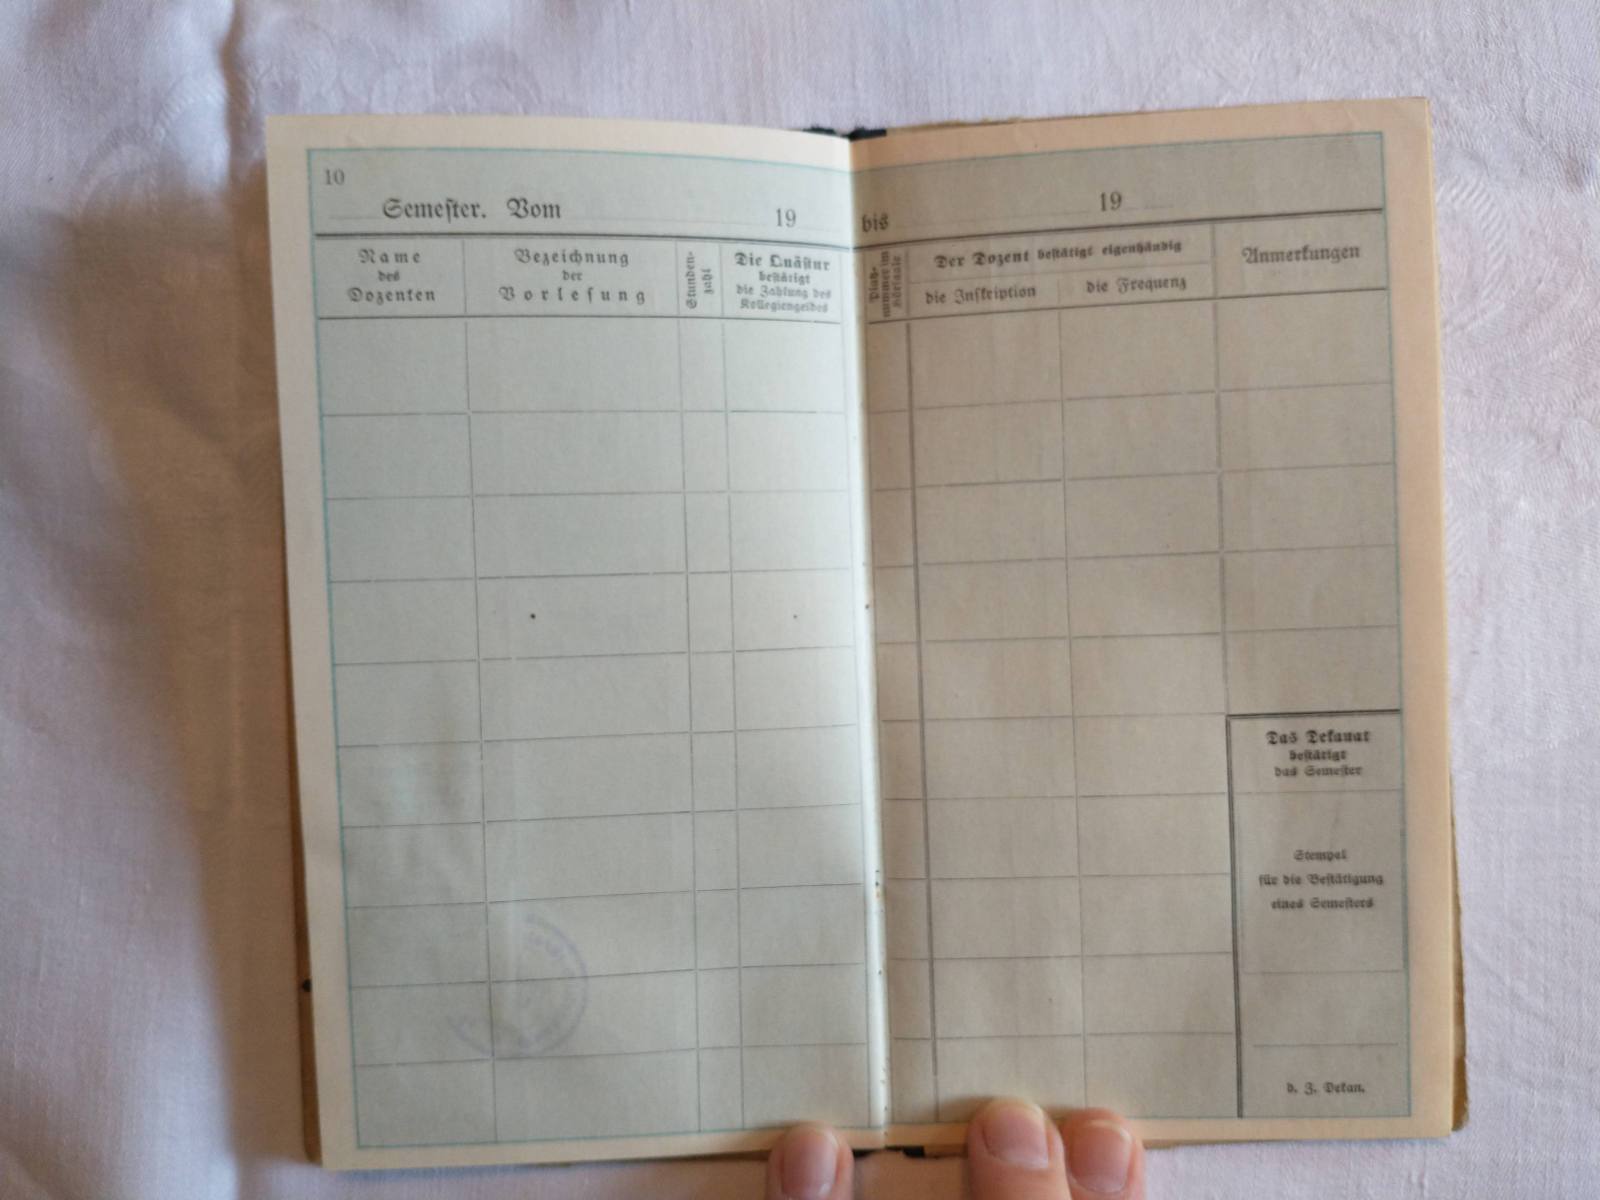 10
Semester. Vom 19
bis 19
Name
des
Dozenten
Bezeichnung
der
Vorlesung
Stunden-
zahl
Die Quästur
bestätigt
die Zahlung des
Kollegiengeldes
Platz-
nummer im
Hörsaale
Der Dozent bestätigt eigenhändig
die Inskription
die Frequenz
Anmerkungen
Das Dekanat
bestätigt
das Semester
Stempel
für die Bestätigung
eines Semesters
d. Z. Dekan.